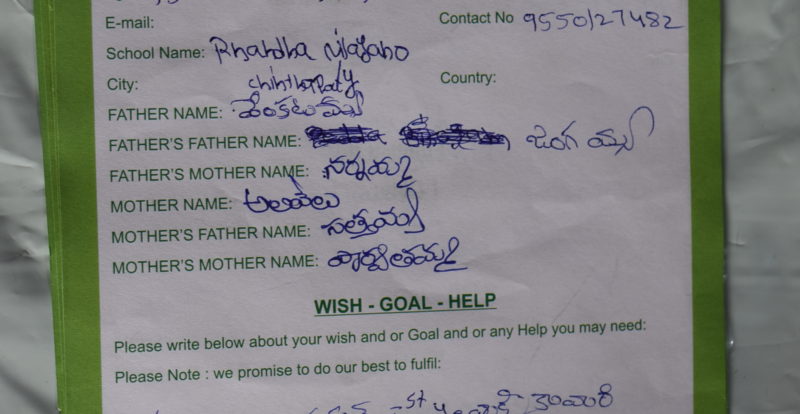 E-mail: Contact No 9550127482
School Name:
City: Country:
FATHER NAME: వెంకటయ్య
FATHER'S FATHER NAME: జంగయ్య
FATHER'S MOTHER NAME: నర్సమ్మ
MOTHER NAME: అలవేలు
MOTHER'S FATHER NAME: సత్తయ్య
MOTHER'S MOTHER NAME: పార్వతమ్మ
WISH - GOAL - HELP
Please write below about your wish and or Goal and or any Help you may need:
Please Note : we promise to do our best to fulfil: